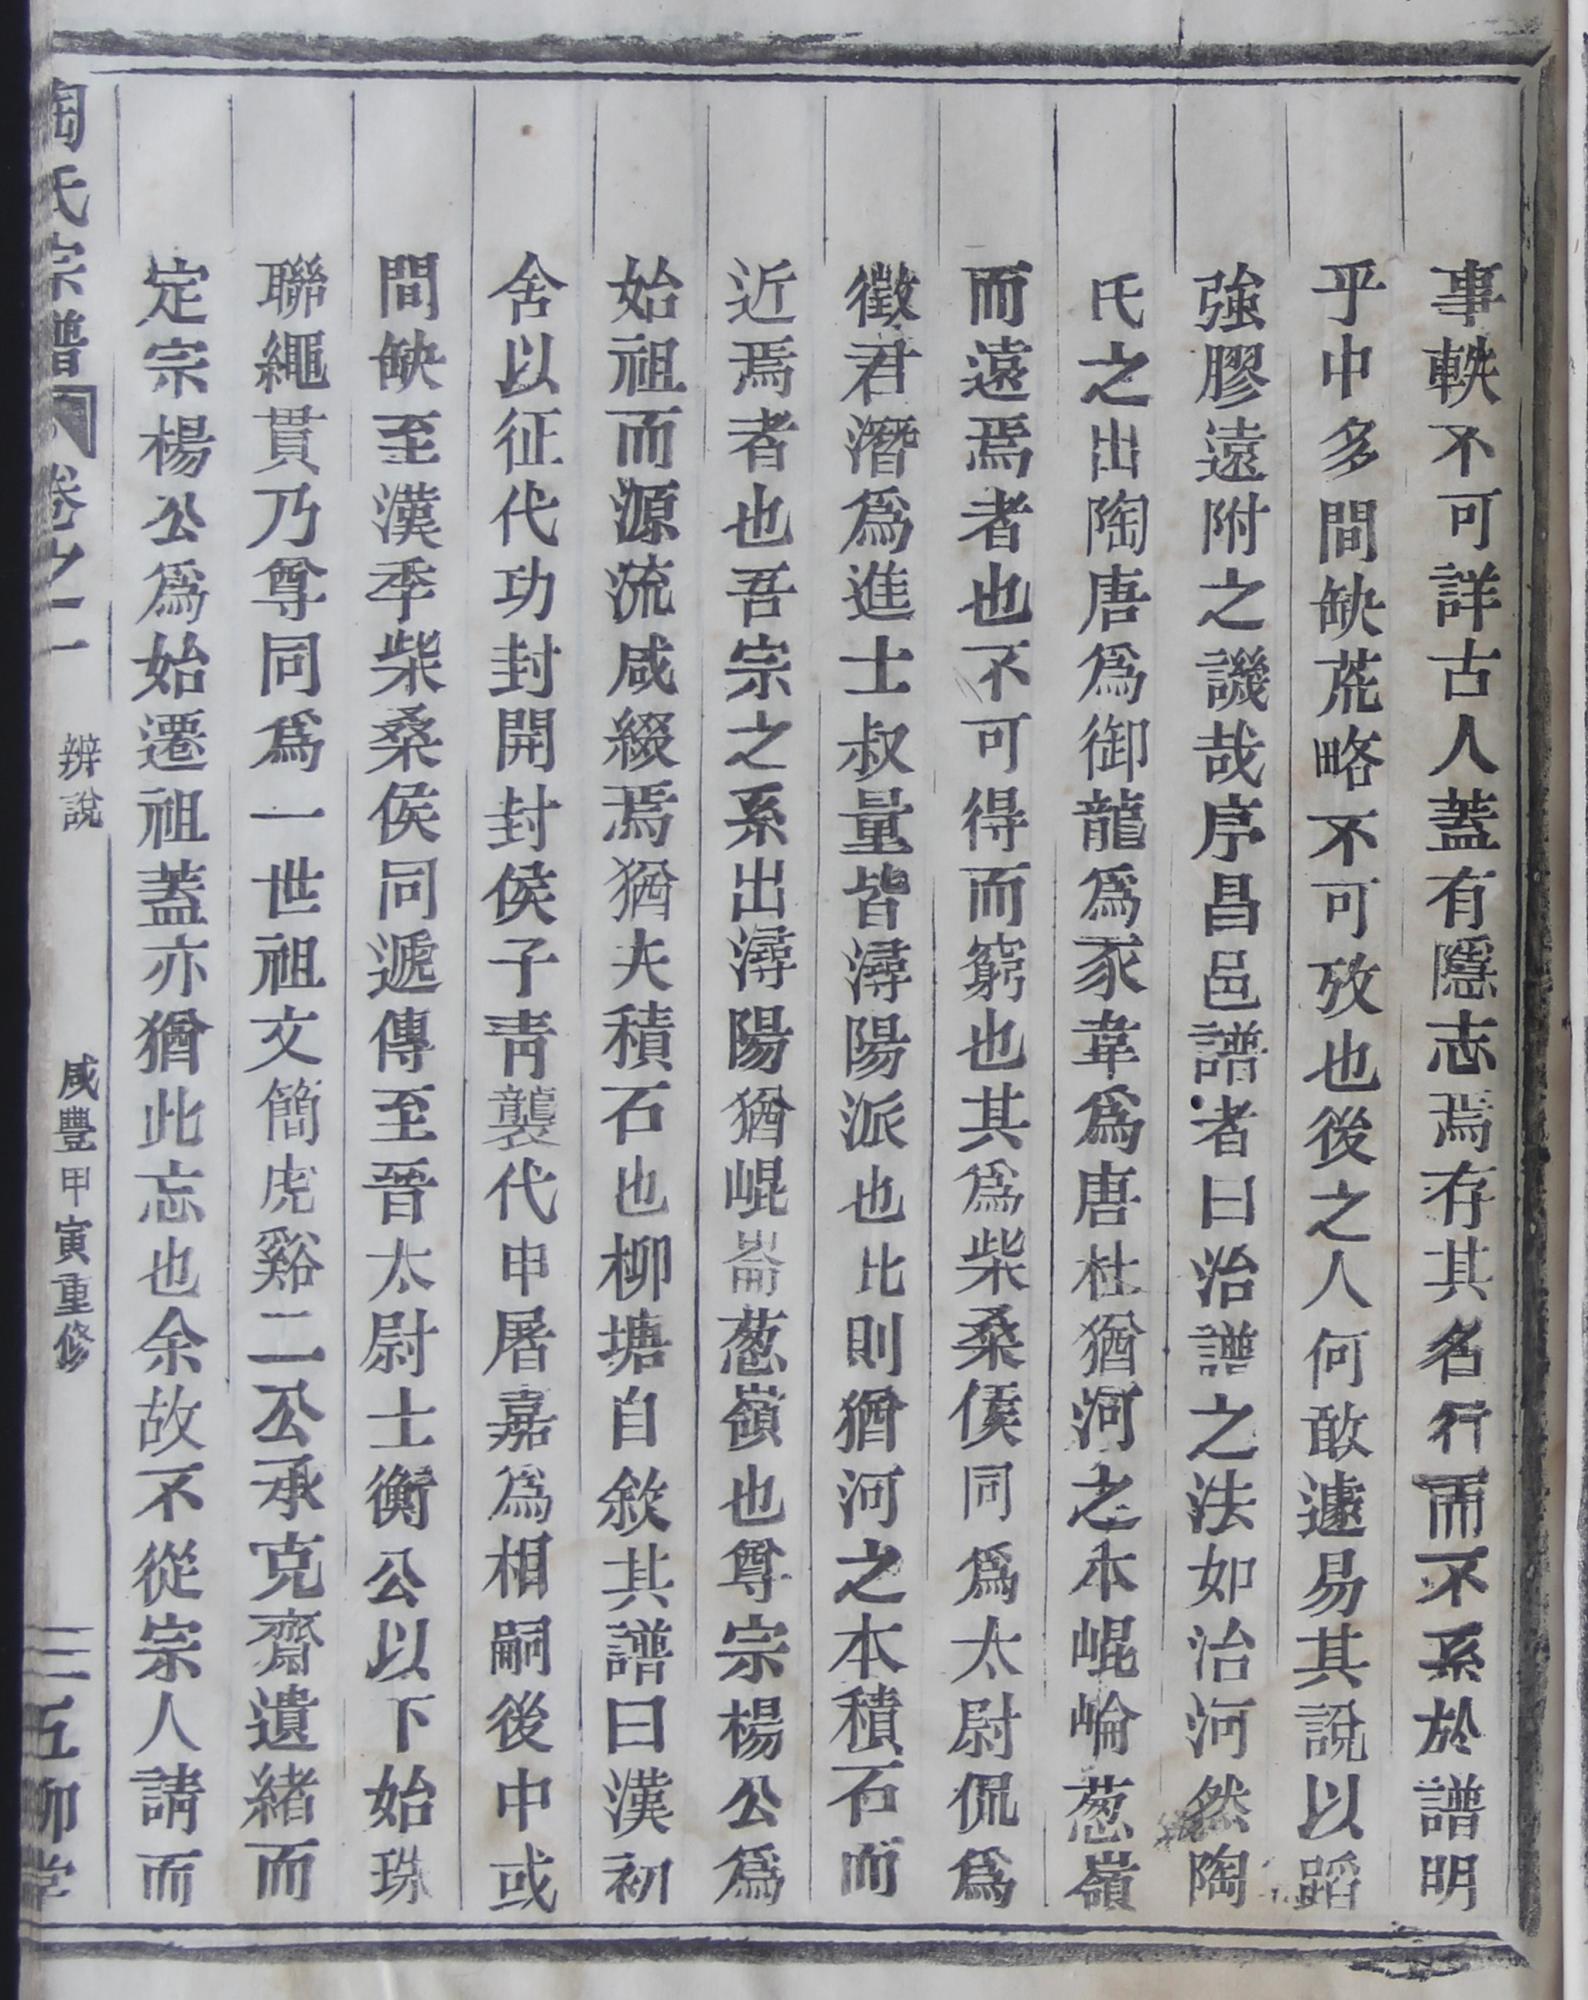 事軼不可詳古人蓋有隱志焉存其名行而不系於譜明
乎中多間缺荒略不可攷也後之人何敢遽易其說以蹈
強膠遠附之譏哉序昌邑譜者曰治譜之法如治河然陶
氏之出陶唐爲御龍爲豕韋爲唐杜猶河之本崐崘葱嶺
而遠焉者也不可得而窮也其爲柴桑侯同爲太尉侃爲
徵君潛爲進士叔量皆潯陽派也比則猶河之本積石而
近焉者也吾宗之系出潯陽猶崐崙葱嶺也尊宗楊公爲
始祖而源流咸綴焉猶夫積石也柳塘自敘其譜曰漢初
舍以征代功封開封侯子靑襲代申屠嘉爲相嗣後中或
間缺至漢季柴桑侯同遞傳至晉太尉士衡公以下始珠
聯繩貫乃尊同爲一世祖文簡虎谿二公承克齋遺緒而
定宗楊公爲始遷祖蓋亦猶此忘也余故不從宗人請而
陶氏宗譜 卷之一 辨說 咸豐甲寅重修 三 五柳堂